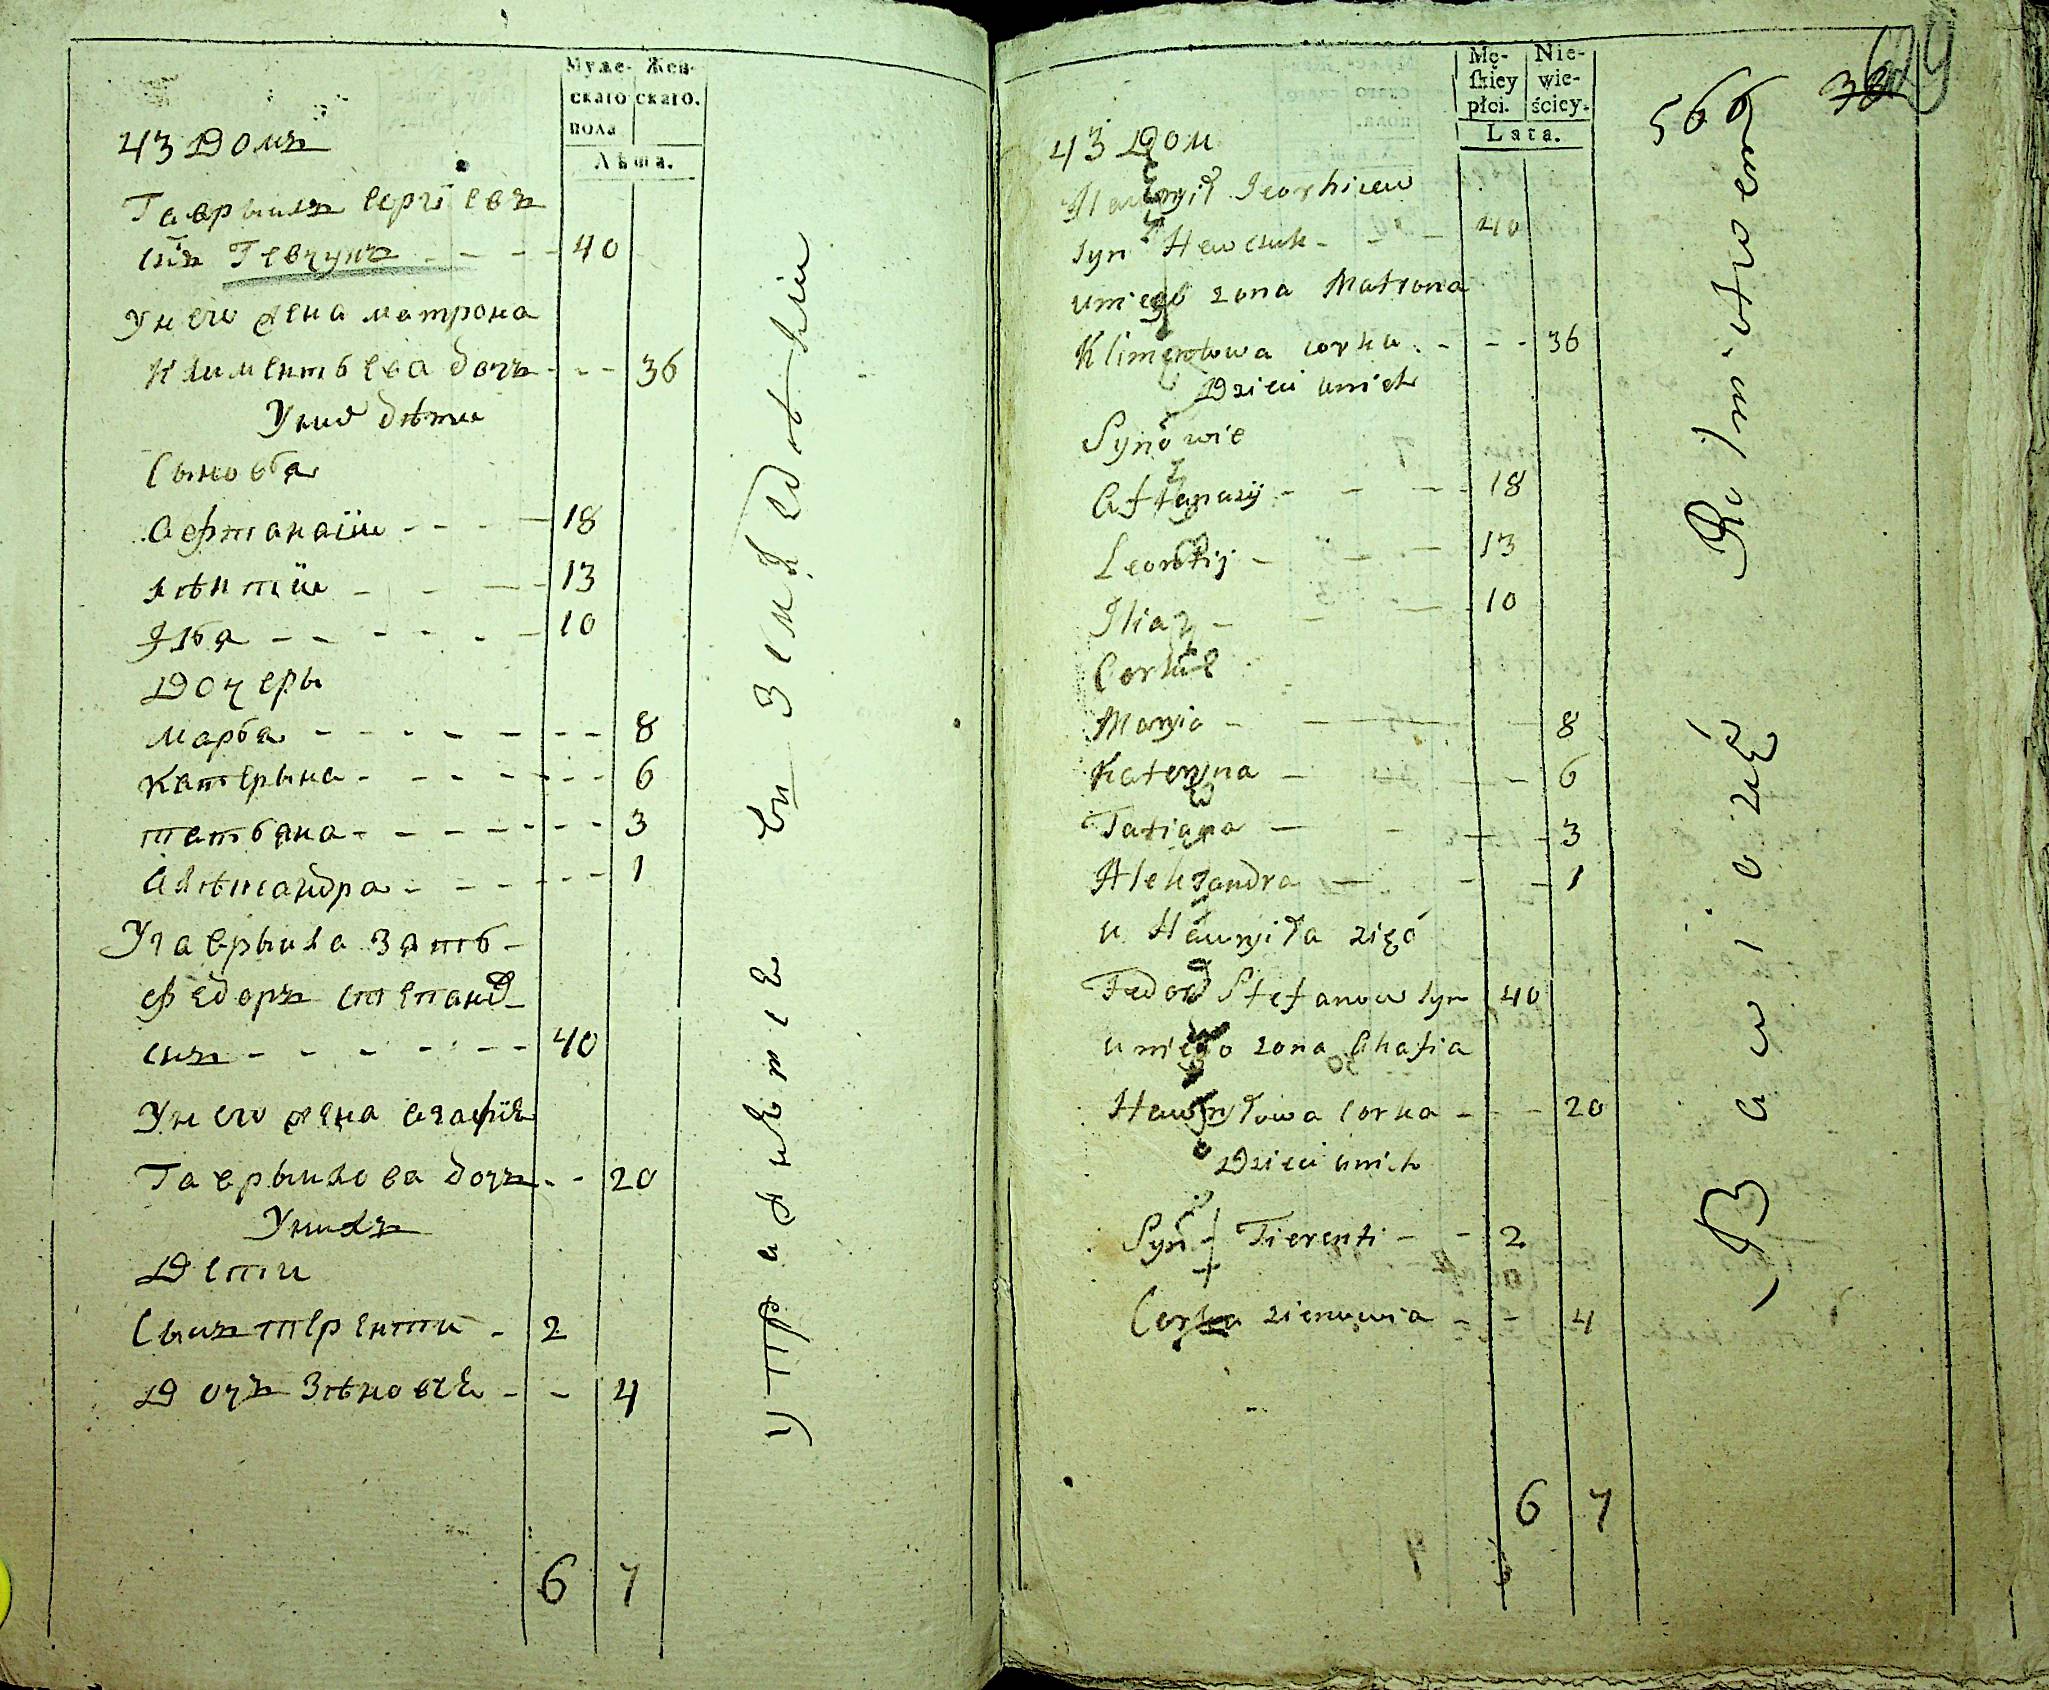 Муже-
скаго
пола
Жен-
скаго.
Лѣта.
43 Домъ
Гаврыилъ Сергіевъ
снъ Гевчукъ - - - - 40
У него жена матрона
Климентьева дочъ - - - 36
У них дѣти
Сыновья
Афтанасіи - - - - 18
Лѣнтіи - - - - 13
Илья - - - - - - 10
Дочеры
Марья - - - - - - - 8
Катерына - - - - - - 6
татьяна - - - - - - - 3
Алѣксандра - - - - - - 1
У гаврыила Зять -
федоръ степанов
снъ - - - - - - - 40
У него жена агафія
Гаврыилова дочъ - - 20
У нихъ
Дети
Сынъ терентии - 2
Дочъ Зѣновія - - 4
6 7
упражнение въ земледѣлии
Mę-
skiey
płci.
Nie-
wie-
ściey.
Lata.
566
43 Dom
Hawrył Jeorhiew
syn Hewczuk - - - 40
u niego zona Matrona
Klimentowa corka - - - 36
Dzieci u nich
Synowie
Aftanasij - - - - 18
Leontij - - - - 13
Ilia - - - 10
Corki
Maryia - - - - 8
Kateryna - - - - 6
Tatiana - - - - 3
Aleksandra - - - 1
u Hawryiła zięć
Fedor Stefanow syn 40
u niego zona Ahafia
Hawryłowa corka - - - 20
Dzieci u nich
Syn - Tierenti - - 2
Corka zienowia - - 4
6 7
Bawi się Rolnictwem